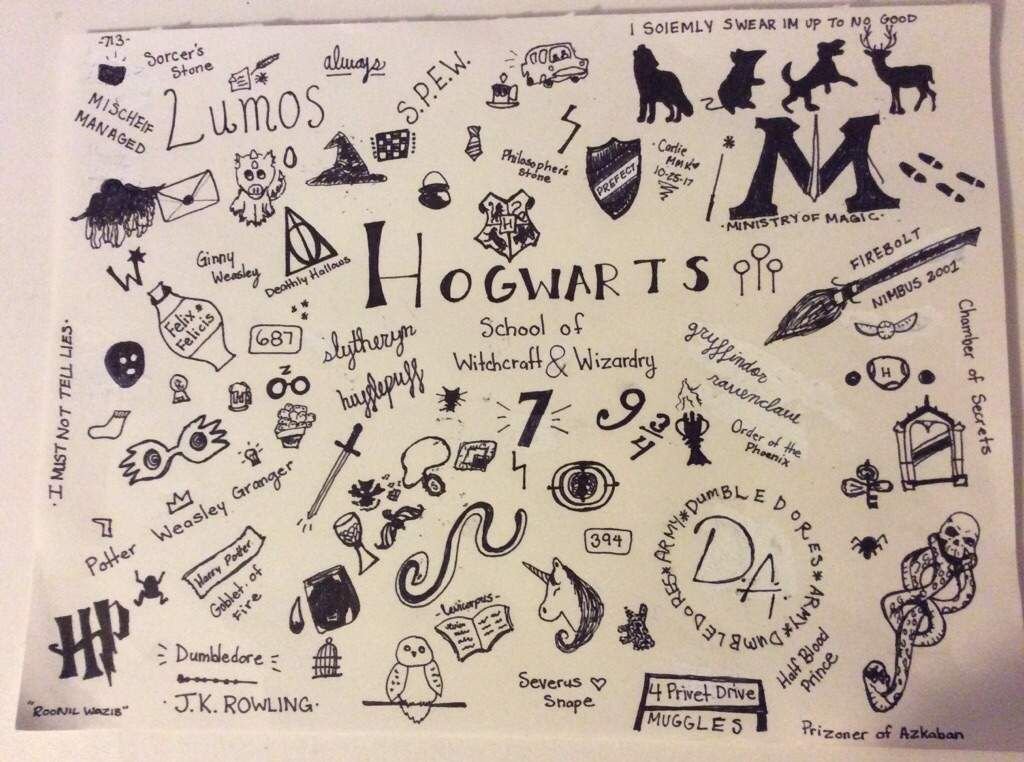 -713-
Sorcer's
Stone
always
S.P.E.W.
I SOlEMLY SWEAR IM UP TO NO GOOD
MISCHEIF
MANAGED
Lumos
Philosopher's
Stone
PREFECT
Carlie
10-25-17
M
·MINISTRY OF MAGIC·
W
Ginny
Weasley
Deathly Hallows
H
HOGWARTS
School of
Witchcraft & Wizardry
FIREBOLT
NIMBUS 2001
Felix
Felicis
687
slytheryn
hufflepuff
gryffindor
ravenclave
H
Chamber of Secrets
·I MIST NOT TELL LIES·
z
7
9 3/4
Order of the
Phoenix
Weasley Granger
Potter
Harry Potter
Goblet of
Fire
394
DUMBLEDORES*ARMY*DUMBLEDORES*ARMY*
D.A.
HP
-Levicorpus-
Dumbledore
·J.K. ROWLING·
"ROONIL WAZIB"
Severus ♡
Snape
4 Privet Drive
MUGGLES
Half Blood
Prince
Prizoner of Azkaban